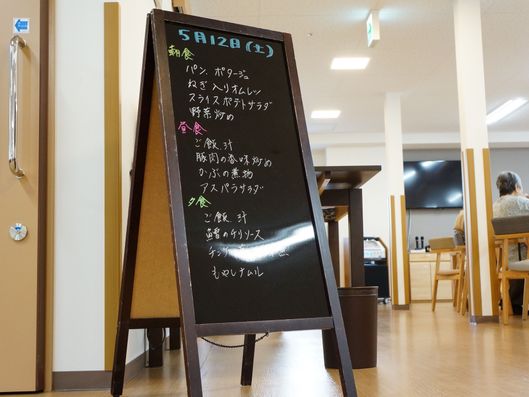 5月12日(土)
朝食
パン、ポタージュ
ねぎ入りオムレツ
スライスポテトサラダ
野菜炒め
昼食
ご飯 汁
豚肉の香味炒め
かぶの煮物
アスパラサラダ
夕食
ご飯 汁
鱈のチリソース
もやしナムル